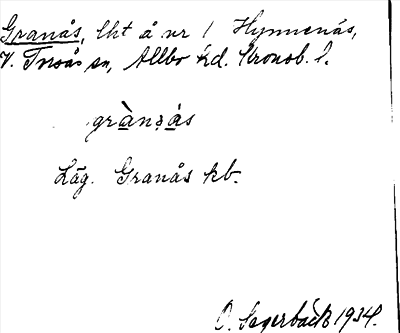 Granås, lht å nr 1 Hynnenäs,
V. Torsås sn, Allbo hd. Kronob. l.
grànsås
Läg. Granås kb.
O. Sagerbäck 1934.